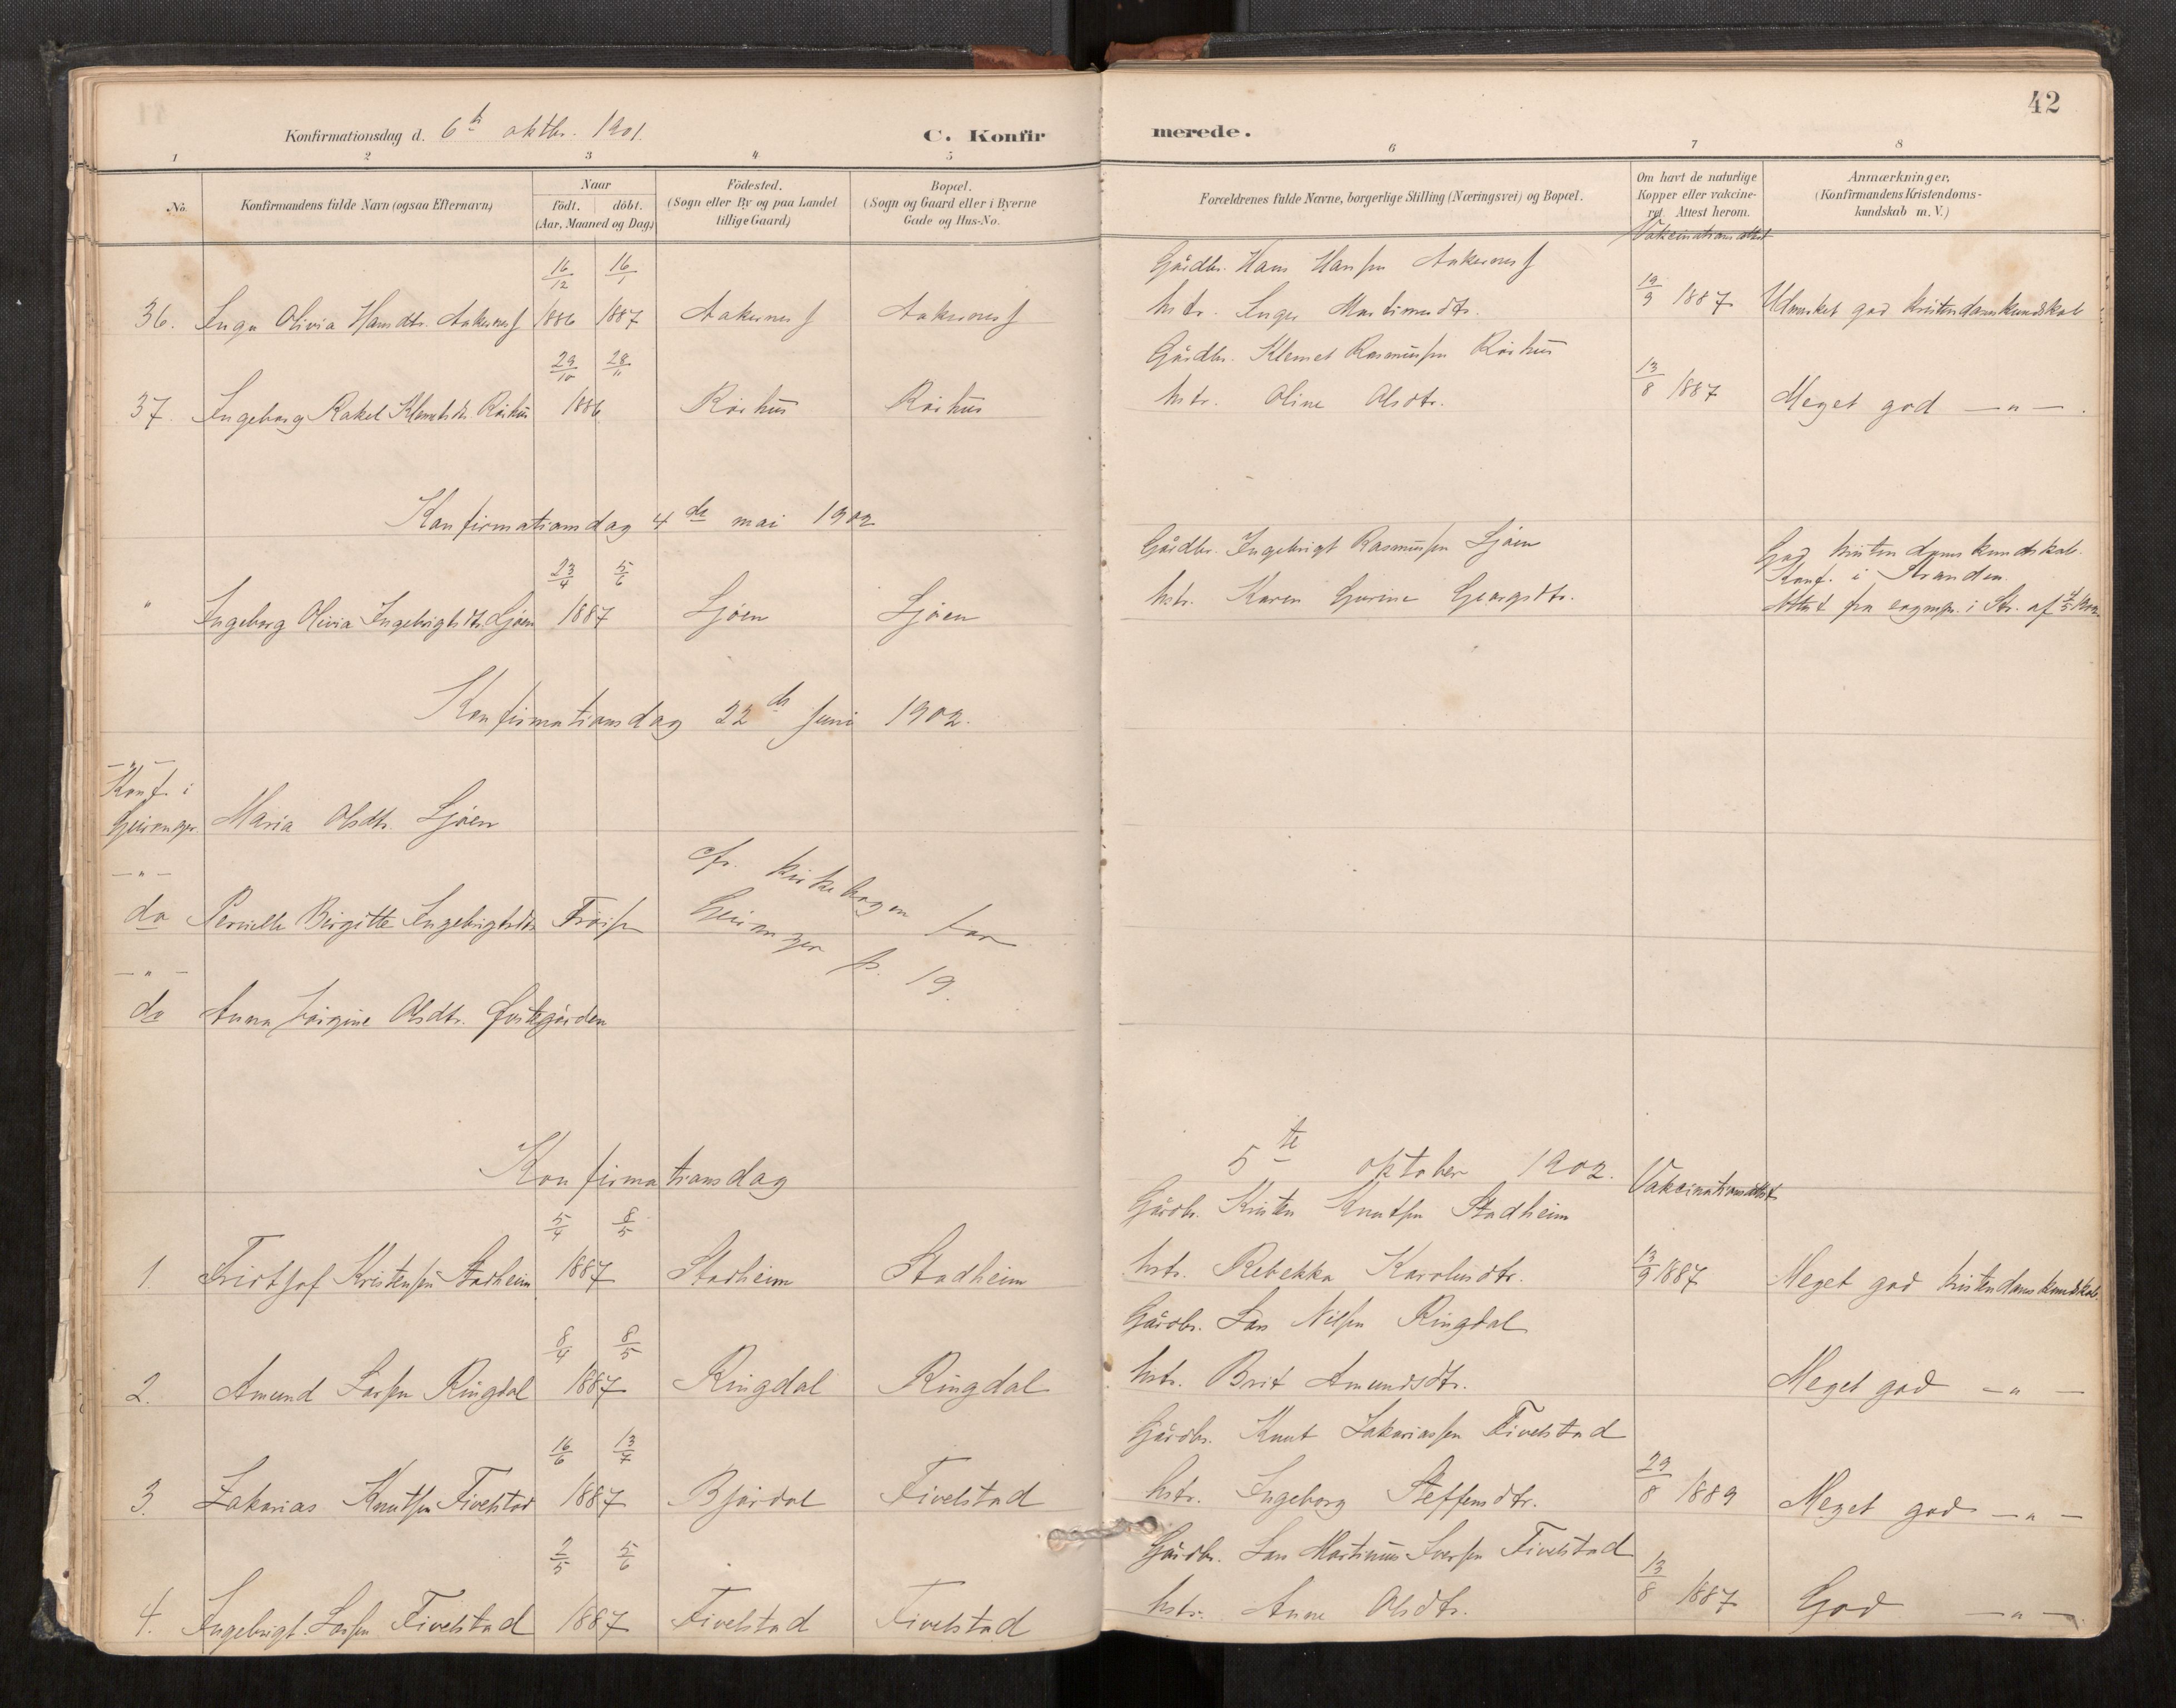 42
Konfirmationsdag d. 6te oktbr. 1901.
C. Konfirmerede.
1 2 3 4 5 6 7 8
No.
Konfirmandens fulde Navn (ogsaa Efternavn)
Naar
Födt. döbt.
(Aar, Maaned og Dag)
Födested.
(Sogn eller By og paa Landet
tillige Gaard)
Bopæl.
(Sogn og Gaard eller i Byerne
Gade og Hus-No.
Forældrenes fulde Navne, borgerlige Stilling (Næringsvei) og Bopæl.
Om havt de naturlige
Kopper eller vakcine-
ret. Attest herom.
Anmærkninger,
(Konfirmandens Kristendoms-
kundskab m. V.)
Vakcinationsattest
16/12 16/1 Gårdbr. Hans Hansen Aakernes
36. Inga Olivia Hansdtr. Aakernes 1886 1887 Aakernes Aakernes hstr. Inger Martinusdtr. 19/9 1887 Udmerket god kristendomskundskab
29/10 28/11 Gårdbr. Klemet Rasmussen Röihus
37. Ingeborg Rakel Klemetsdtr. Röihus 1886. Röihus Röihus hstr. Oline Olsdtr. 13/8 1887 Meget god —"—.
Konfirmationsdag 4de mai 1902
23/4 5/6 Gårdbr. Ingebrigt Rasmussen Ljöen God kristendomskundskab.
Konf. i Stranden.
" Ingeborg Olivia Ingebrigtsdtr. Ljöen 1887 Ljöen Ljöen hstr. Karen Gurine Georgsdtr. Attest fra sogнpr. i Str. af
Konfirmationsdag 22de juni 1902.
—"—
Konf. i
Geiranger. Maria Olsdtr. Ljöen
—"—
do Pernille Birgitte Ingebrigtsdtr Fröisa
cfr. kirkebogen for
Geiranger p. 19.
—"—
do Anna Jörgine Olsdtr. Østegården
Konfirmationsdag 5te oktober 1902. Vakcinationsattest
5/4 8/5 Gårdbr. Kristen Knutsen Stadheim
1. Fridtjof Kristensen Stadheim 1887 Stadheim Stadheim hstr. Rebekka Karolusdtr. 13/9 1887 Meget god kristendomskundskab.
8/4 8/5 Gårdbr. Lars Nilsen Ringdal
2. Amund Larsen Ringdal 1887 Ringdal Ringdal hstr. Brit Amundsdtr. Meget god —"—
16/6 13/7 Gårdbr. Knut Zakariassen Fivelstad
3. Zakarias Knutsen Fivelstad 1887 Björdal Fivelstad hstr. Ingeborg Steffensdtr. 29/8 1889 Meget god —"—
2/5 5/6 Gårdbr. Lars Martinus Iversen Fivelstad
4. Ingebrigt Larsen Fivelstad 1887 Fivelstad Fivelstad hstr. Anne Olsdtr. 13/8 1887 God —"—.